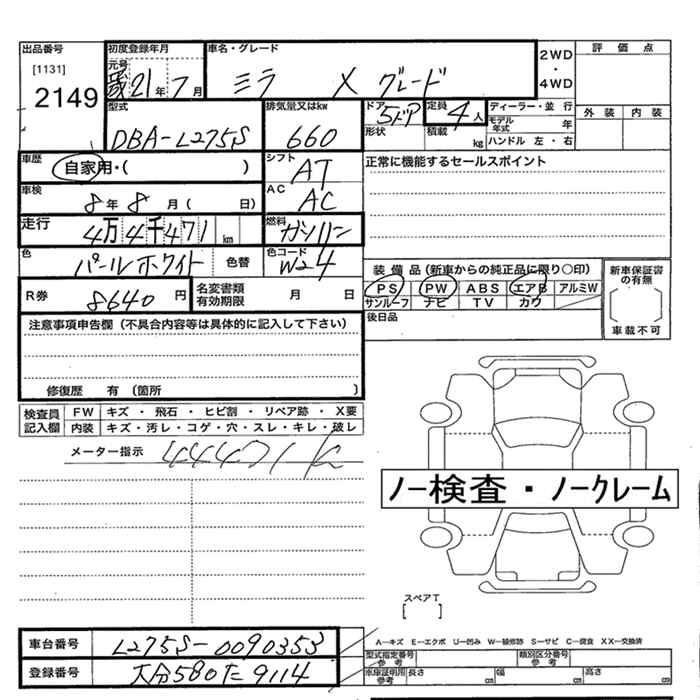 出品番号
[1131]
2149
初度登録年月
元号
21年 7月
車名・グレード
ミラ X グレード
2WD
・
4WD
評価点
外装 内装
型式
DBA-L275S
排気量又はkw
660
ドア
5ドア
形状
定員
4人
積載
kg
ディーラー・並行
モデル年式 年
ハンドル 左・右
車歴
自家用・( )
シフト
AT
正常に機能するセールスポイント
車検
8年 8月( 日)
AC
AC
走行
4万4千471km
燃料
ガソリン
色
パールホワイト
色替
色コード
W24
装備品(新車からの純正品に限り○印)
PS PW ABS エアB アルミW
サンルーフ ナビ TV カワ
新車保証書の有無
[ ]
車載不可
R券 8640円
名変書類有効期限 月 日
後日品
注意事項申告欄(不具合内容等は具体的に記入して下さい)
修復歴 有(箇所 )
検査員記入欄
FW キズ・飛石・ヒビ割・リペア跡・X要
内装 キズ・汚レ・コゲ・穴・スレ・キレ・破レ
メーター指示 44471k
ノー検査・ノークレーム
スペアT
[ ]
車台番号 L275S-0090353
登録番号 大分580た9114
A-キズ E-エクボ U-凹み W-補修跡 S-サビ C-腐食 XX-交換済
型式指定番号参考
類別区分番号参考
車庫証明用参考 長さ cm 幅 cm 高さ cm